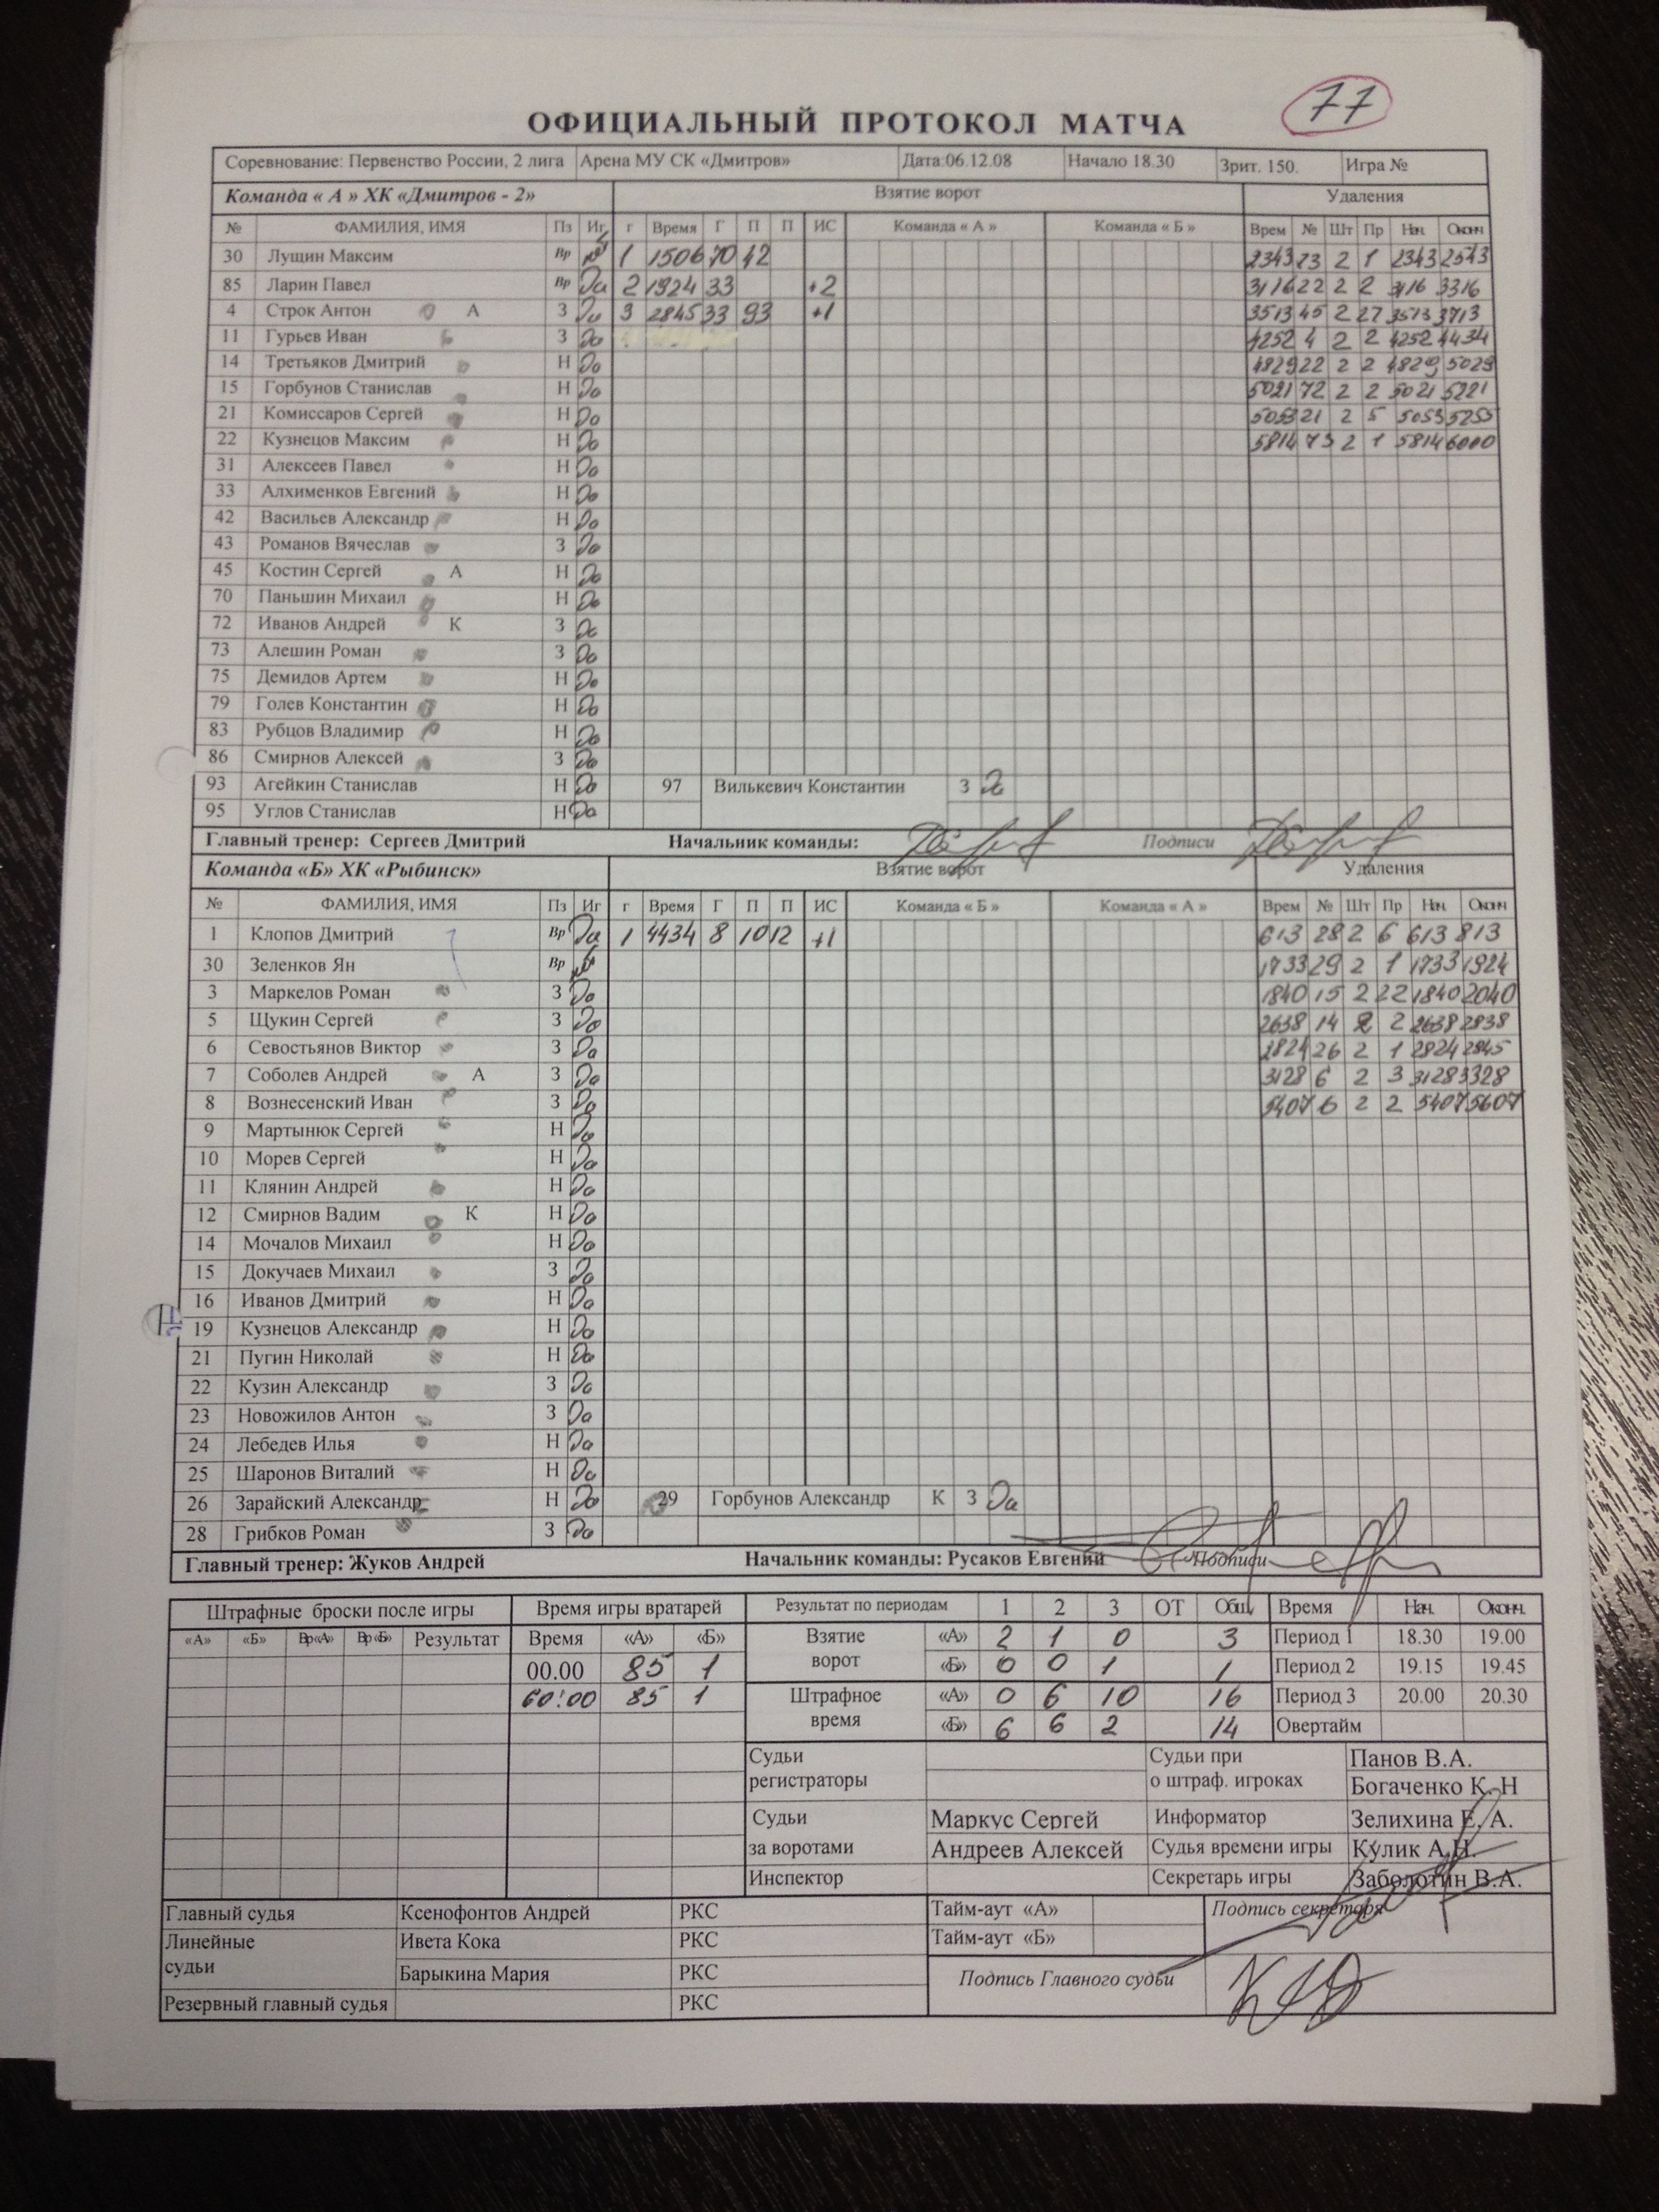 77
ОФИЦИАЛЬНЫЙ ПРОТОКОЛ МАТЧА
Соревнование: Первенство России, 2 лига Арена МУ СК «Дмитров» Дата:06.12.08 Начало 18.30 Зрит. 150. Игра №
Команда « А » ХК «Дмитров - 2» Взятие ворот Удаления
№ ФАМИЛИЯ, ИМЯ Пз Иг г Время Г П П ИС Команда « А » Команда « Б » Врем № Шт Пр Нач. Оконч
30 Лущин Максим Вр 1 1506 70 42 2343 73 2 1 2343 2543
85 Ларин Павел Вр Да 2 1924 33 +2 3116 22 2 2 3116 3316
4 Строк Антон А З Да 3 2845 33 93 +1 3513 45 2 27 3513 3713
11 Гурьев Иван З Да 4252 4 2 2 4252 4434
14 Третьяков Дмитрий Н Да 4829 22 2 2 4829 5029
15 Горбунов Станислав Н Да 5021 72 2 2 5021 5221
21 Комиссаров Сергей Н Да 5053 21 2 5 5053 5253
22 Кузнецов Максим Н Да 5814 73 2 1 5814 6000
31 Алексеев Павел Н Да
33 Алхименков Евгений Н Да
42 Васильев Александр Н Да
43 Романов Вячеслав З Да
45 Костин Сергей А Н Да
70 Паньшин Михаил Н Да
72 Иванов Андрей К З Да
73 Алешин Роман З Да
75 Демидов Артем Н Да
79 Голев Константин Н Да
83 Рубцов Владимир Н Да
86 Смирнов Алексей З Да
93 Агейкин Станислав Н Да 97 Вилькевич Константин З Да
95 Углов Станислав Н Да
Главный тренер: Сергеев Дмитрий Начальник команды: Подписи
Команда «Б» ХК «Рыбинск» Взятие ворот Удаления
№ ФАМИЛИЯ, ИМЯ Пз Иг г Время Г П П ИС Команда « Б » Команда « А » Врем № Шт Пр Нач. Оконч
1 Клопов Дмитрий Вр Да 1 4434 8 10 12 +1 613 28 2 6 613 813
30 Зеленков Ян Вр 1733 29 2 1 1733 1924
3 Маркелов Роман З Да 1840 15 2 22 1840 2040
5 Щукин Сергей З Да 2638 14 2 2 2638 2838
6 Севостьянов Виктор З Да 2824 26 2 1 2824 2845
7 Соболев Андрей А З Да 3128 6 2 3 3128 3328
8 Вознесенский Иван З Да 5407 6 2 2 5407 5607
9 Мартынюк Сергей Н Да
10 Морев Сергей Н Да
11 Клянин Андрей Н Да
12 Смирнов Вадим К Н Да
14 Мочалов Михаил Н Да
15 Докучаев Михаил З Да
16 Иванов Дмитрий Н Да
19 Кузнецов Александр Н Да
21 Пугин Николай Н Да
22 Кузин Александр З Да
23 Новожилов Антон З Да
24 Лебедев Илья Н Да
25 Шаронов Виталий Н Да
26 Зарайский Александр Н Да 29 Горбунов Александр К З Да
28 Грибков Роман З Да
Главный тренер: Жуков Андрей Начальник команды: Русаков Евгений Подписи
Штрафные броски после игры Время игры вратарей Результат по периодам 1 2 3 ОТ Общ. Время Нач. Оконч.
«А» «Б» Вр«А» Вр«Б» Результат Время «А» «Б» Взятие ворот «А» 2 1 0 3 Период 1 18.30 19.00
00.00 85 1 «Б» 0 0 1 1 Период 2 19.15 19.45
60:00 85 1 Штрафное время «А» 0 6 10 16 Период 3 20.00 20.30
«Б» 6 6 2 14 Овертайм
Судьи регистраторы Судьи при о штраф. игроках Панов В.А.
Богаченко К. Н
Судьи за воротами Маркус Сергей Информатор Зелихина Е. А.
Андреев Алексей Судья времени игры Кулик А.Н.
Инспектор Секретарь игры Заболотин В.А.
Главный судья Ксенофонтов Андрей РКС Тайм-аут «А» Подпись секретаря
Линейные судьи Ивета Кока РКС Тайм-аут «Б»
Барыкина Мария РКС Подпись Главного судьи
Резервный главный судья РКС